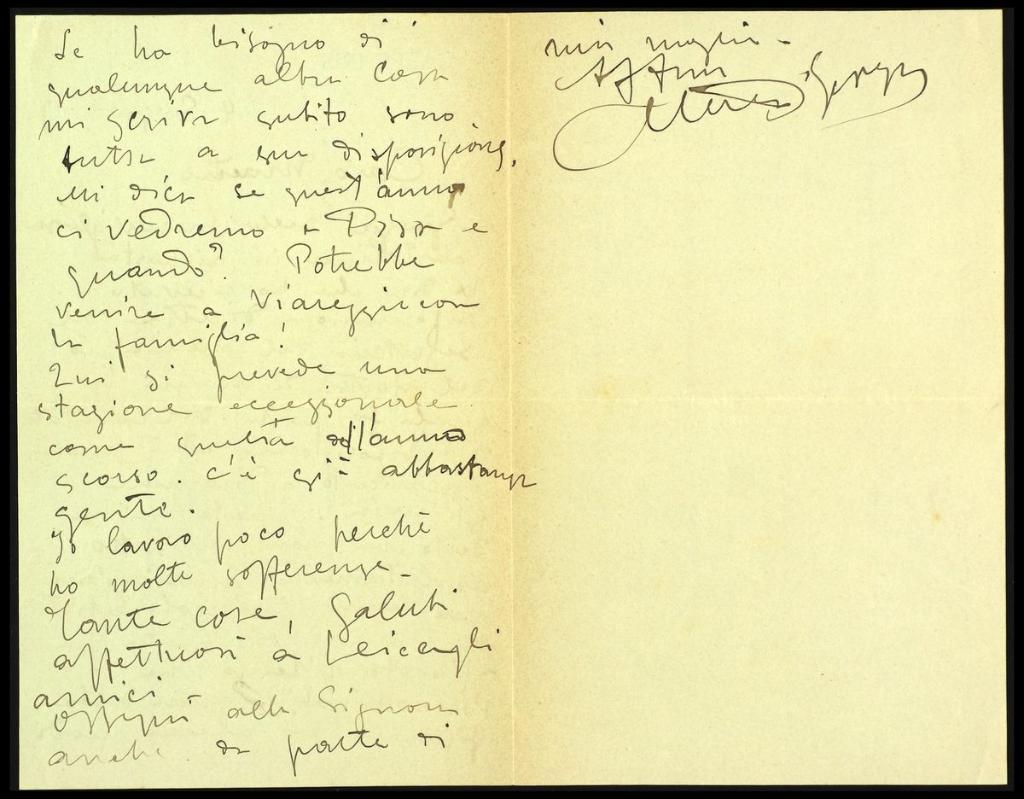 Se ha bisogno di
qualunque altra cosa
mi scriva subito sono
tutta a sua disposizione.
Mi dica se quest'anno
ci vedremo a Pisa e
quando? Potrebbe
venire a Viareggio con
la famiglia!
Qui si prevede una
stagione eccezionale
come quella dell'anno
scorso. C'è già abbastanza
gente.
Io lavoro poco perchè
ho molte sofferenze –
Tante cose, Saluti
affettuosi a Lei e agli
amici –
Ossequi alla Signora
anche da parte di
mia moglie –
Aff.mo